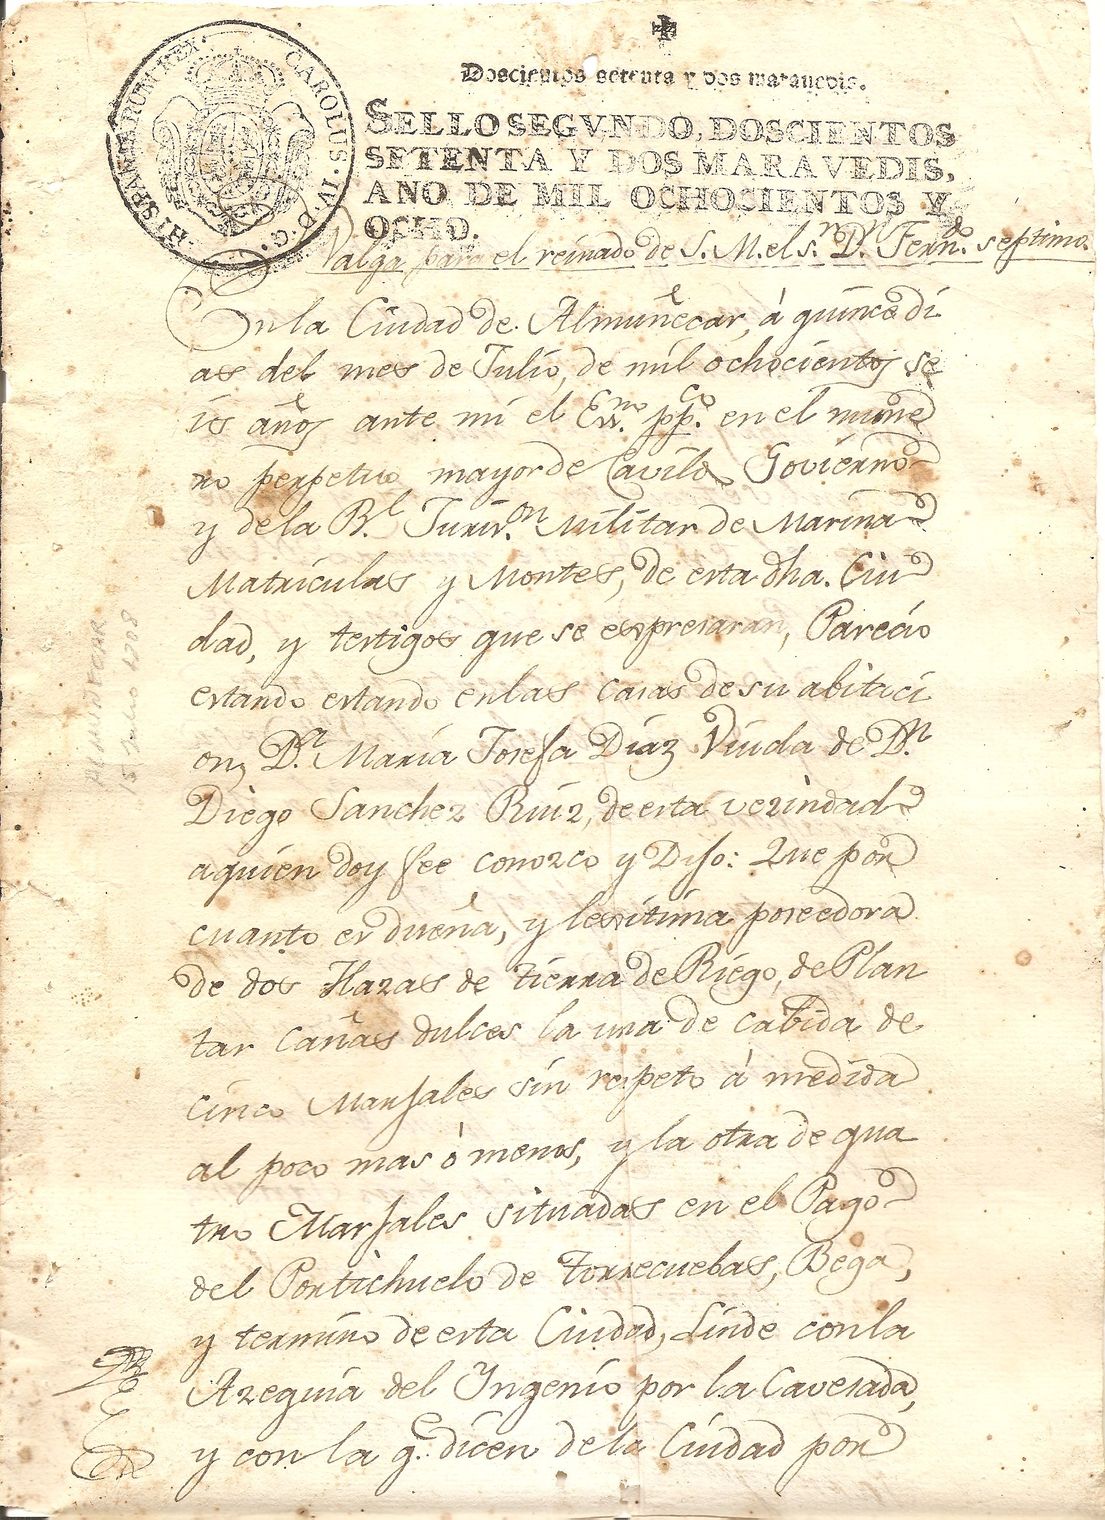 HISPANIARUM REX. CAROLUS. IV. D. G.
Doscientos setenta y dos maravedis.
SELLO SEGVNDO, DOSCIENTOS
SETENTA Y DOS MARAVEDIS,
AÑO DE MIL OCHOCIENTOS Y
OCHO.
Valga para el reinado de S. M. el S.n D.n Fern.do septimo.
En la Ciudad de Almuñecar, á quince di
as del mes de Julio, de mil ochocientos se
is años ante mi el Ess.no pp.co en el nume
ro perpetuo mayor de Cavildo Govierno
y de la R.l Juris.on Militar de Marina
Matriculas y Montes, de esta dha. Ciu
dad, y testigos que se espresaran, Parecio
estando estando en las casas de su abitaci
on, D.a Maria Josefa Diaz Viuda de D.n
Diego Sanchez Ruiz, de esta vezindad
a quien doy fee conozco y Dijo: Que por
cuanto es dueña, y lexitima poseedora
de dos Hazas de tierra de Riego, de Plan
tar cañas dulces la una de cabida de
cinco Marjales sin respeto á medida
al poco mas ó menos, y la otra de qua
tro Marjales situadas en el Pago
del Portichuelo de Torrecuebas, Bega,
y termino de esta Ciudad, Linde con la
Azequia del Yngenio por la Cavesada,
y con la q.e dicen de la Ciudad por
ALMUÑECAR
15 Julio 1708